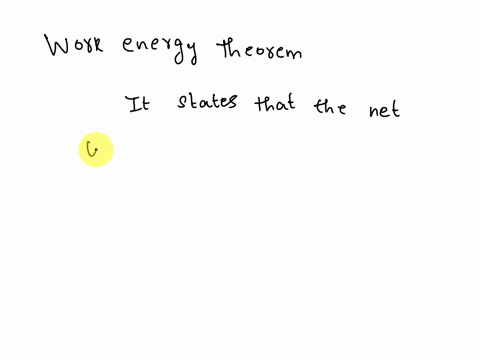 Work energy theorem
It states that the net